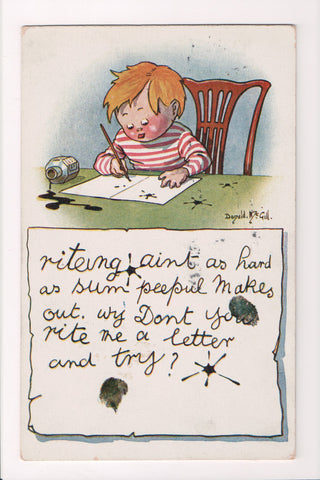 Donald. McGill.
riteing aint as hard
as sum peepul makes
out. wy Dont you
rite me a letter
and try?